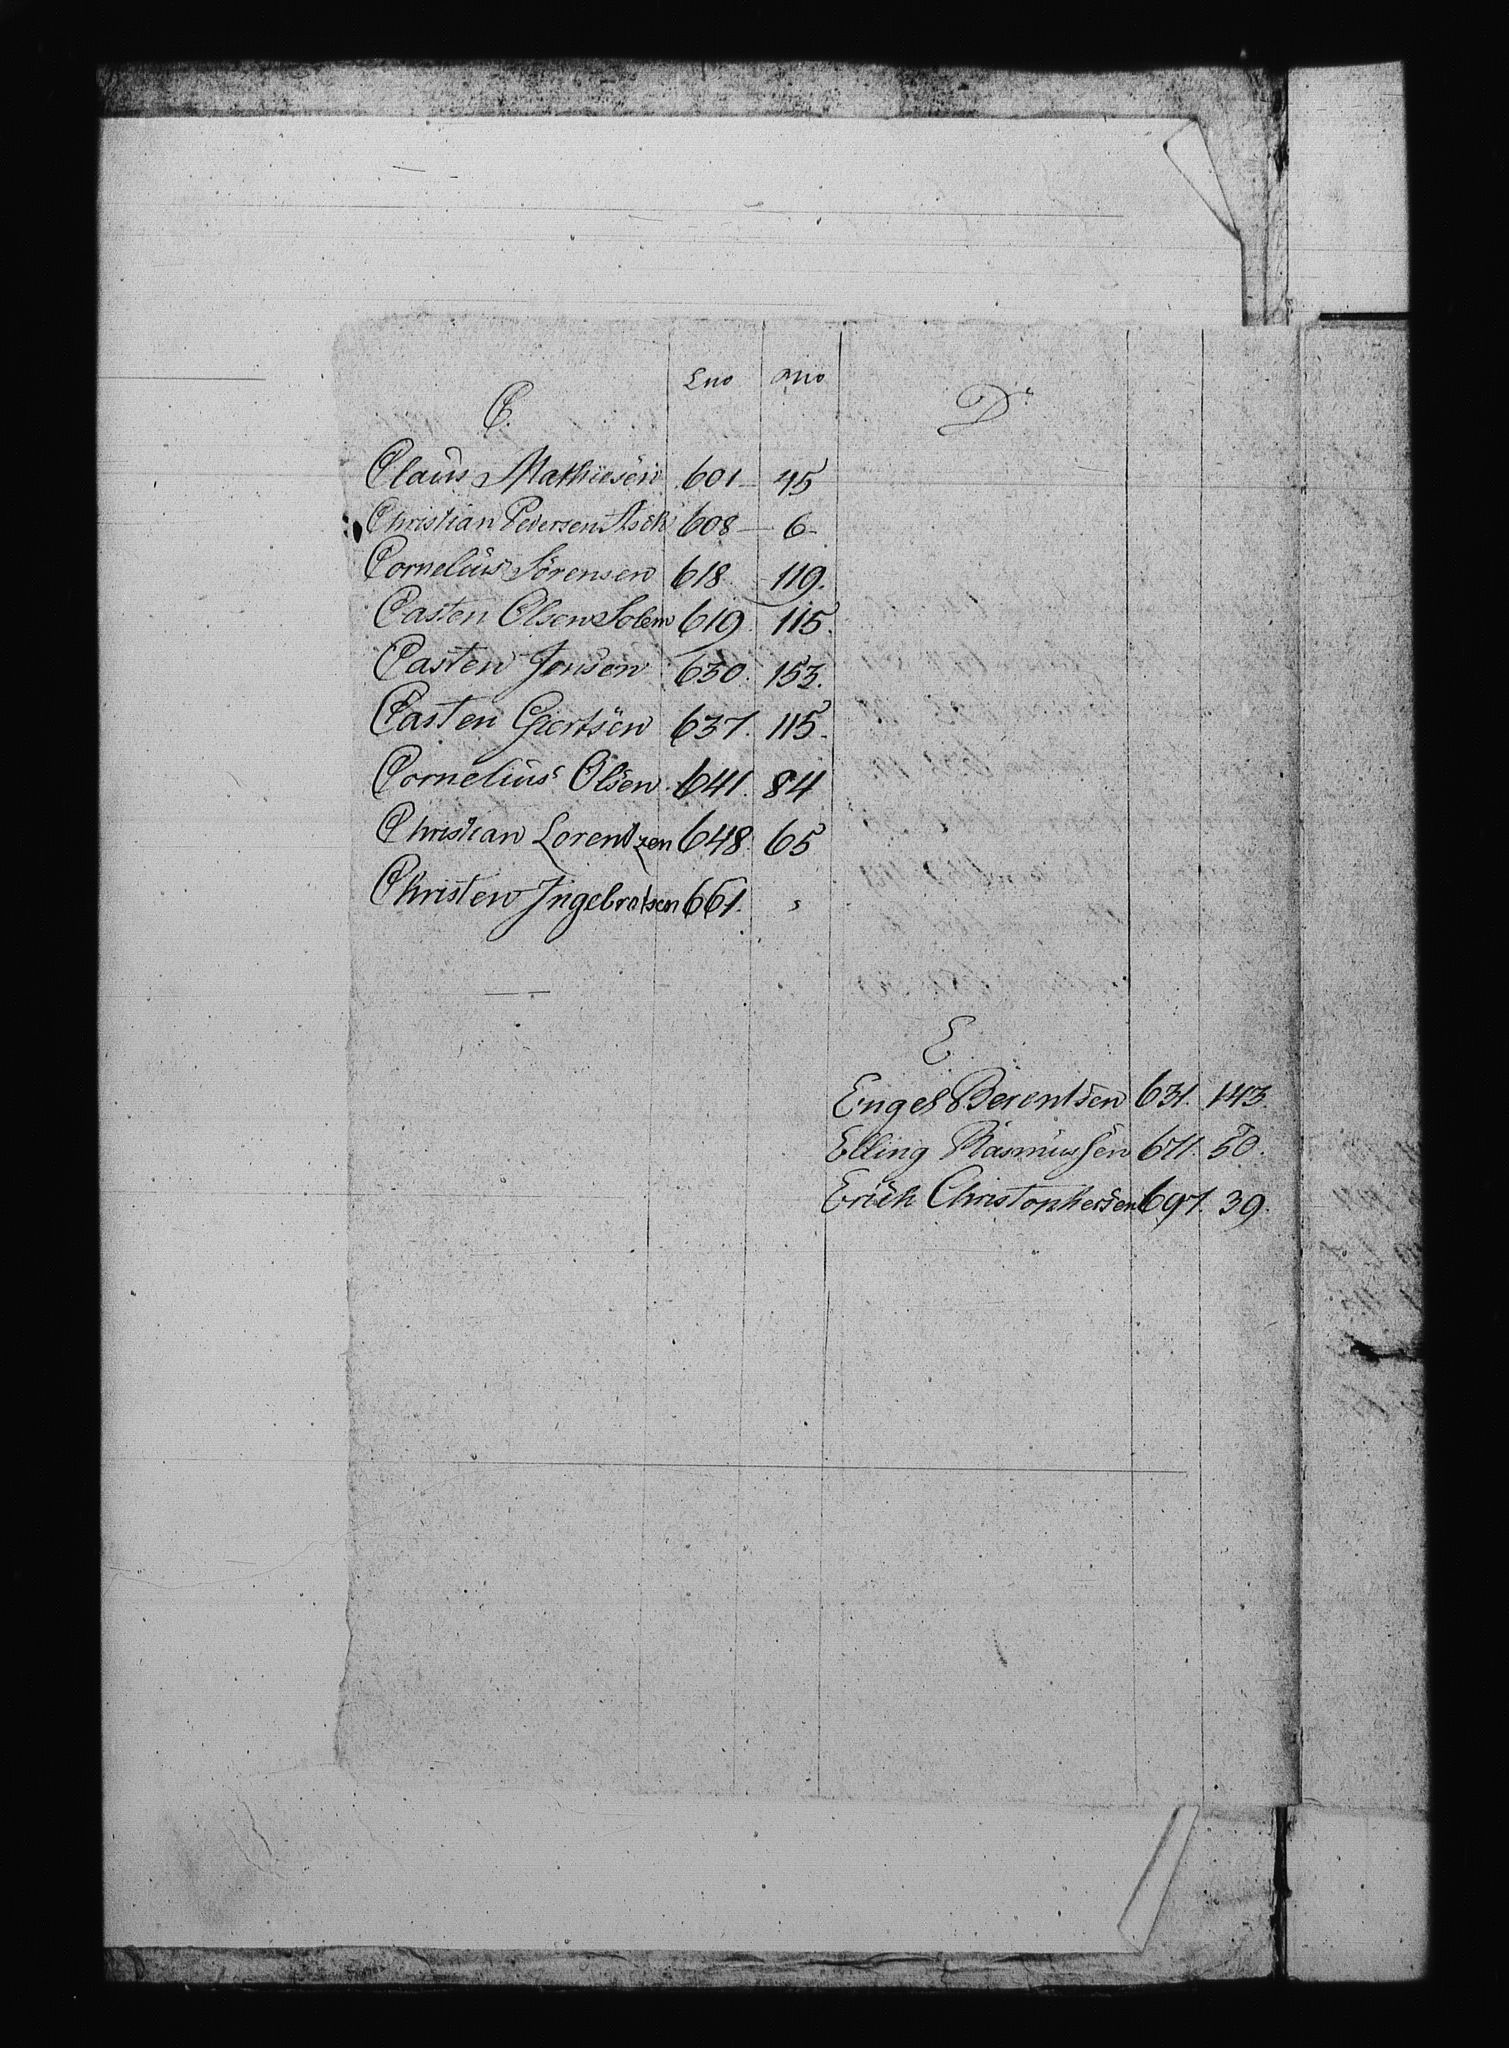 Lno Mno
C.
Claus Mathiesen 601 - 45
Christian Pedersen Asch 608 - 6
Cornelius Sörensen 618 - 119.
Casten Olsen Solem 619. 115.
Casten Jensen 630. 153.
Casten Giertsen 637. 115.
Cornelius Olsen 641. 84
Christian Lorentzen 648. 65
Christen Ingebratsen 661. "
D
E
Engel Berentsen 631. 143.
Elling Rasmussen 671. 50.
Erich Christophersen 697. 39.